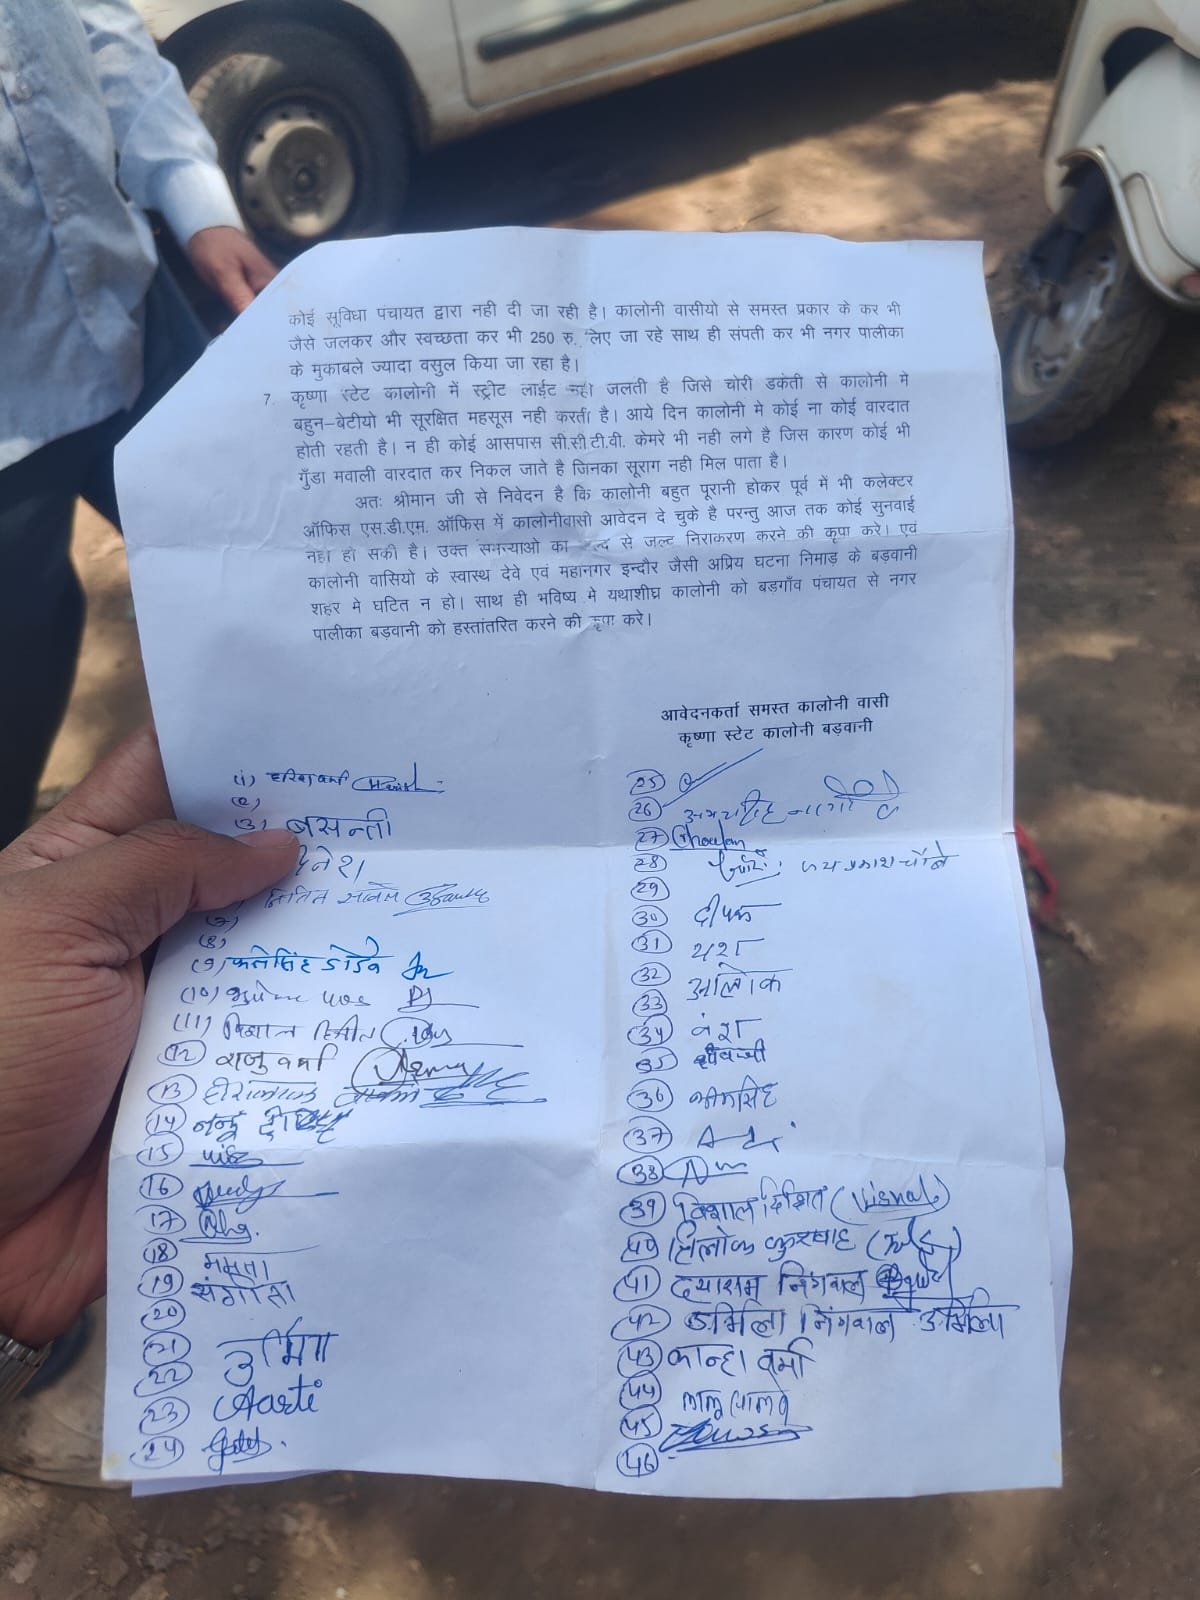 कोई सूविधा पंचायत द्वारा नही दी जा रही है। कालोनी वासीयो से समस्त प्रकार के कर भी
जैसे जलकर और स्वच्छता कर भी 250 रु. लिए जा रहे साथ ही संपती कर भी नगर पालीका
के मुकाबले ज्यादा वसुल किया जा रहा है।
7. कृष्णा स्टेट कालोनी में स्ट्रीट लाईट नही जलती है जिसे चोरी डकेती से कालोनी मे
बहुन-बेटीयो भी सूरक्षित महसूस नही करती है। आये दिन कालोनी मे कोई ना कोई वारदात
होती रहती है। न ही कोई आसपास सी.सी.टी.वी. केमरे भी नही लगे है जिस कारण कोई भी
गुँडा मवाली वारदात कर निकल जाते है जिनका सूराग नही मिल पाता है।
अतः श्रीमान जी से निवेदन है कि कालोनी बहुत पूरानी होकर पूर्व में भी कलेक्टर
ऑफिस एस.डी.एम. ऑफिस में कालोनीवासी आवेदन दे चुके है परन्तु आज तक कोई सुनवाई
नही हो सकी है। उक्त समस्याओ का जल्द से जल्द निराकरण करने की कृपा करे। एवं
कालोनी वासियो के स्वास्थ देवे एवं महानगर इन्दौर जैसी अप्रिय घटना निमाड़ के बड़वानी
शहर मे घटित न हो। साथ ही भविष्य मे यथाशीघ्र कालोनी को बड़गाँव पंचायत से नगर
पालीका बड़वानी को हस्तांतरित करने की कृपा करे।
आवेदनकर्ता समस्त कालोनी वासी
कृष्णा स्टेट कालोनी बड़वानी
(1)
(2)
(3) बसन्ती
(7)
(8)
(9) फतेसिंह
(10)
(11) विशाल
(12) राजु वर्मा
(13) हीरालाल
(14) नन्दू
(15)
(16)
(17)
(18) ममता
(19) संगीता
(20)
(21) उर्मिला
(22)
(23) Aarti
(24)
(25)
(26)
(27)
(28) जय प्रकाश चौबे
(29)
(30) दीपक
(31) यश
(32) आलोक
(33)
(34) वंश
(35)
(36) भीमसिंह
(37)
(38)
(39) विशाल दिक्षित (Vishal)
(40) त्रिलोक कुशवाह
(41) दयाराम निंगवाल
(42) उर्मिला निंगवाल उर्मिला
(43) कान्हा वर्मा
(44)
(45)
(46)